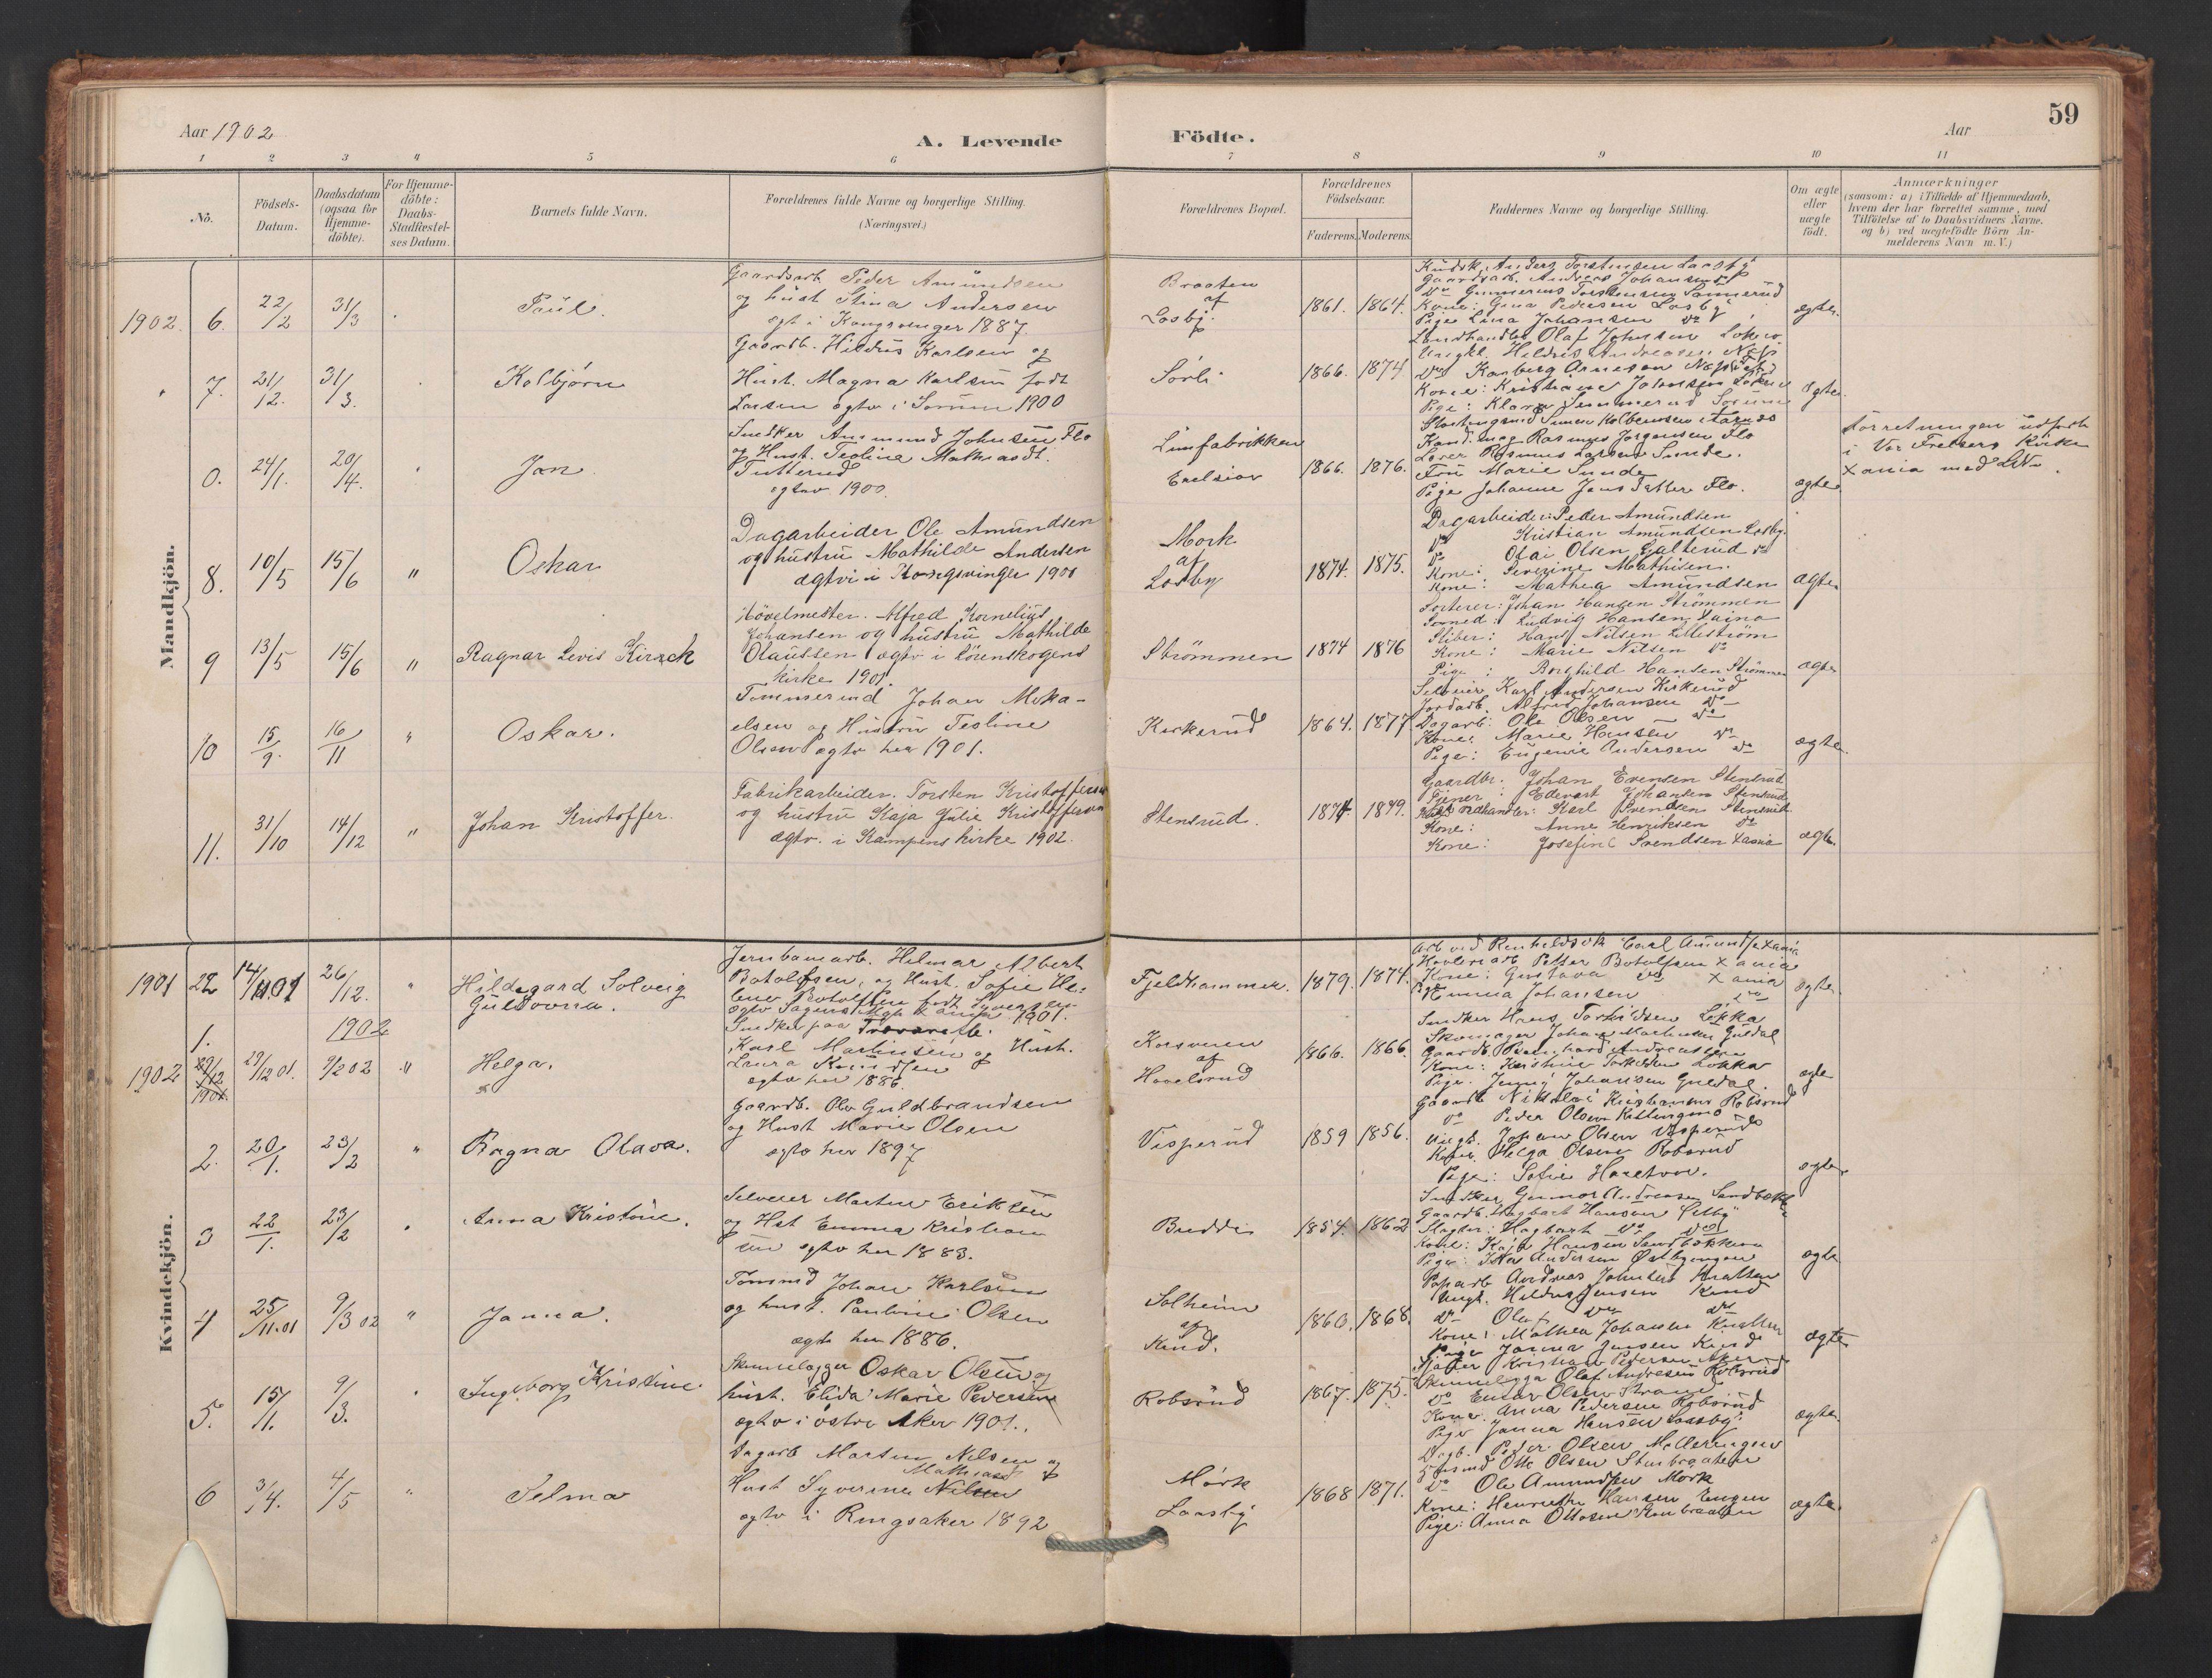 Aar 1902
A. Levende
Födte.
Aar
59
1 2 3 4 5 6 7 8 9 10 11
No.
Födsels-
Datum.
Daabsdatum
(ogsaa for
Hjemme-
döbte).
For Hjemme-
döbte:
Daabs-
Stadfæstel-
ses Datum.
Barnets fulde Navn.
Forældrenes fulde Navne og borgerlige Stilling.
(Næringsvei.)
Forældrenes Bopæl.
Forældrenes
Födselsaar.
Faderens. Moderens.
Faddernes Navne og borgerlige Stilling.
Om ægte
eller
uægte
födt.
Anmærkninger
(saasom: a) i Tilfælde af Hjemmedaab,
hvem der har forrettet samme, med
Tilföielse af to Daabsvidners Navne.
og b) ved uægtefödte Börn An-
melderens Navn m. V.)
Mandkjön.
1902. 6. 22/2 31/3
Paül.
Gaardsarb. Peder Amündsen
og hüst Stina Andersen
egt i Kongsvinger 1887.
Braaten
af
Losby.
1861. 1864.
Kudsk. Anders Torstensen Laasby
Gaardsarb. Andreas Johansen
Do Gunnerius Torstensen Sannerud
Kone: Gina Pedersen Losby
Pige Lina Johansen do
ægte.
" 7. 21/12. 31/3.
Kolbjørn
Gaardb. Hildus Karlsen og
Hüst. Magna Karlsen født
Larsen ægtv i Sørum 1900
Sørli
1866. 1874
Landhandler Olaf Johnsen Løken
Ungkl. Hildus Andreasen Næs
Kone: Kristiane Johansen Løken
Pige: Klara Sørum
ægte.
0. 24/1. 20/4.
Jan
Snedker Aasmund Johnsen Flo
og Hust. Teoline Mathiasdt.
Tutterud
egtav 1900
Limfabrikken
Exelsior
1866. 1876.
Kand. mag Rasmus Jørgensen Flo
Lærer Rasmus Larsen Sunde.
Frü Marie Sunde
Pige Johanne Jens Flo.
ægte
Forretningen udført
i Vor Frelsers Kirke
Xania med
8. 10/5 15/6 "
Oskar
Dagarbeider Ole Amündsen
og hüstrü Mathilde Andersen
ægtvi i Kongsvinger 1901
Mork
af
Losby
1874. 1875.
Dagarbeider: Peder Amündsen
do Kristian Amündsen Losby.
do Olai Olsen Galterud do
Kone: Severine Mathisen.
Kone: Mathea Amündsen
ægte
9 13/5 15/6 "
Ragnar Levis Kirseck
Hövelmester. Alfred Kornelius
Johansen og hüstrü Mathilde
Olaussen ægtv i Lörenskogens
kirke 1901.
Strömmen
1874 1876
Sorterer: Johan Hansen Strömmen
Formed: Ludvig Hansen Xania
Sliber: Hans Nilsen Lilleström
Kone: Marie Nilsen do
Pige: Borghild Hansen Strömmen
ægte
10 15/9. 16/11 "
Oskar.
Tømmermd Johan Mika-
elsen og Hüstrü Teoline
Olsen ægtv her 1901.
Kirkerud
1864. 1877
Selveier Karl Andersen Kirkerud
Jordarb. Alfred Johansen do
Dagarb: Ole Olsen do
Kone: Marie Hansen do
Pige: Eugenie Andersen do
ægte.
11. 31/10 14/12 "
Johan Kristoffer.
Fabrikarbeider. Torsten Kristoffersen
og hüstrü Kaja Julie Kristoffersen
ægtv. i Kampens kirke 1902.
Stensrud.
1874. 1879.
Gaardbr. Johan Evensen Stensrud
Gjener: Edevart Johansen Stensrud
Karl Svendsen Stensrud
Kone: Anne Henriksen do
Kone: Josefine Svendsen Xania
ægte.
Kvindekjön.
1901 22 14/11.01 26/12. "
Hildegard Solveig
Gustovna.
Jernbanearb. Helmar Albert
Botolfsen, og Hust. Sofie He-
lene Botolfsen født Syversen
1901.
Fjeldhammer.
1879. 1874.
Arb ved Renholdsvk Carl Amund Xania
Høvleriarb Petter Botolfsen Xania
Kone: Gustava do Xania
Pige Emma Johansen do
ægte.
1902
1902 1. 29/12 1901 29/12 01. 9/2 02 "
Helga.
Snedker paa Trævarefb.
Karl Martinsen og Hust.
Laura Knudsen
egtv her 1886.
Korsveien
af
Haneborud
1866. 1866.
Snedker Hans Torkildsen Løkka
Skomager Johan Martinsen Guldal
Gaardb. Bernhard Andreassen
Kone: Kristine Torkildsen Løkka
Pige. Jenny Johansen Guldal.
ægte
2. 20/1. 23/2 "
Ragna Olava.
Gaardb. Ole Guldbrandsen
og Hust Marie Olsen
egtv her 1897
Visperud
1859 1856.
Gaardb Nikolai Kristiansen Robsrud
do Peder Olsen Kittingmo
Ungk. Johan Olsen Visperud
Kone. Helga Olsen Robsrud
Pige: Sofie
ægte.
3 22/1. 23/2 "
Anna Kristine.
Selveier Martin Eriksen
og Hst Emma Kristian
sen egtv her 1883.
Budde
1854. 1862
Snedker Gunnar Andreasen Sandbakk
Gaardb. Dagbart Hansen
Slagter: Hagbart do do
Kone: Kaja Hansen Sandbakken
Pige: Andersen Østbyengen
ægte
4 25/11.01 9/3 02 "
Janna.
Tømmd Johan Karlsen
og hust. Pauline Olsen
ægtv her 1886.
Solheim
af
Kind.
1860. 1868.
Paparb Andreas Johnsen Kratten
Ungk. Hildus Jensen Kind
do Olaf do do
Kone: Mathea Johansen Kratten
Pige Janna Jensen Kind
ægte
5. 15/11. 9/3. "
Ingeborg Kristine.
Skinnelægger Oskar Olsen og
hust. Elida Marie Pedersen
ægtv i østre Aker 1901.
Robsrüd
1867. 1875.
Kristian Pedersen Aker
Skinnelægger Olaf Andresen Robsrüd
do Einar Olsen Strand
Kone. Anna Pedersen Robsrüd
Pige Janna Hansen Laasby
ægte.
6 3/4. 4/5 "
Selma
Dagarb Martin Nilsen og
Mathiasd
Hust Syverine Nilsen
egtv i Ringsaker 1892
Mørk
Laasby
1868 1871.
Dagb. Peder Olsen Møllerengen
Tømmd Otto Olsen Stubrgaten
do Ole Amundsen Mørk
Kone: Henriette Hansen Engen
Pige: Anna Ottosen
ægte.